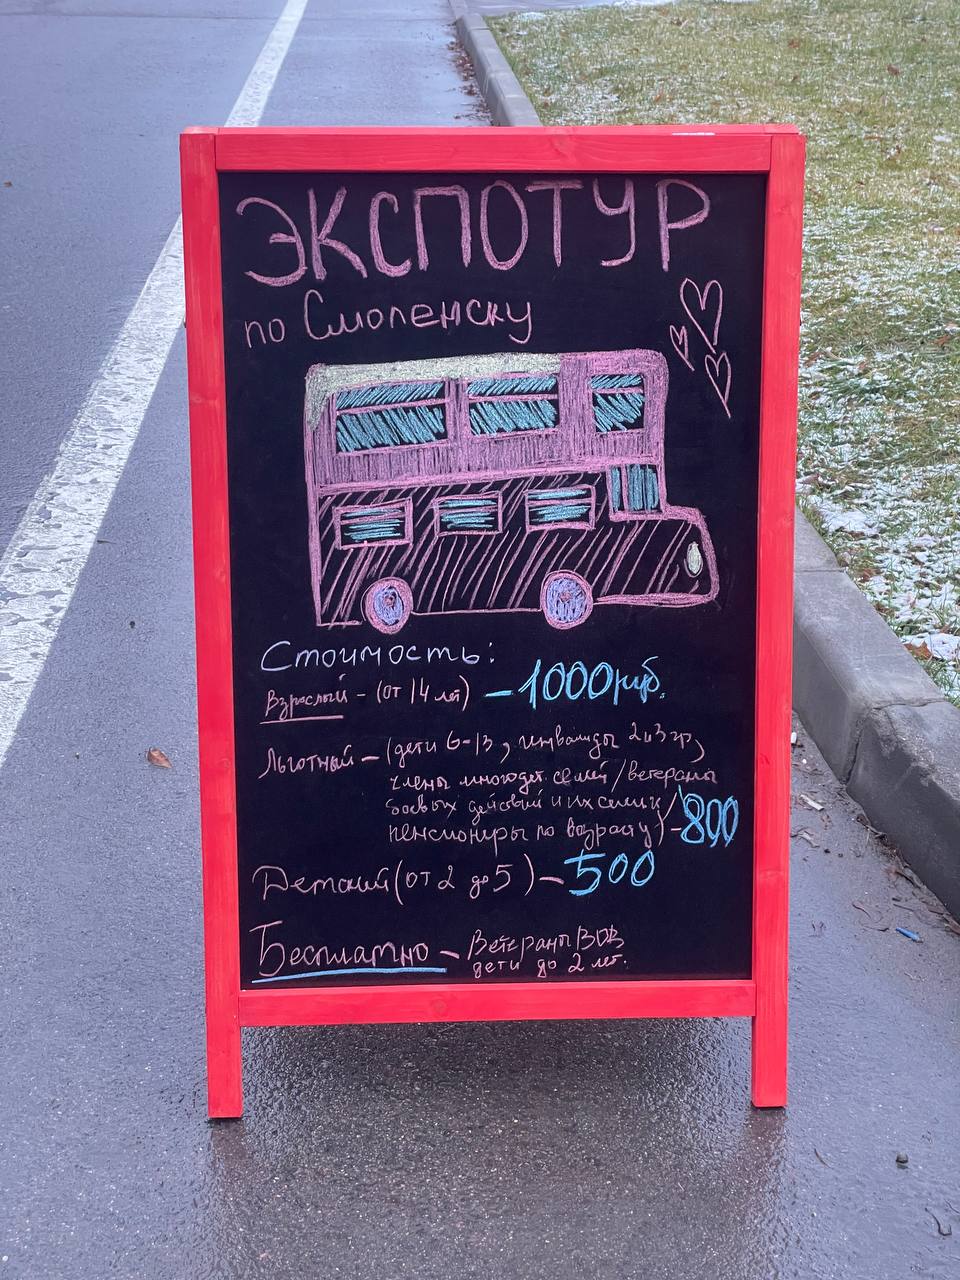 ЭКСПОТУР
по Смоленску
Стоимость:
Взрослый - (от 14 лет) - 1000 руб.
Льготный - (дети 6-13, инвалиды 2 и 3 гр,
члены многодет. семей / ветераны
боевых действий и их семьи /
пенсионеры по возрасту) - 800
Детский (от 2 до 5) - 500
Бесплатно - Ветераны ВОВ
дети до 2 лет.